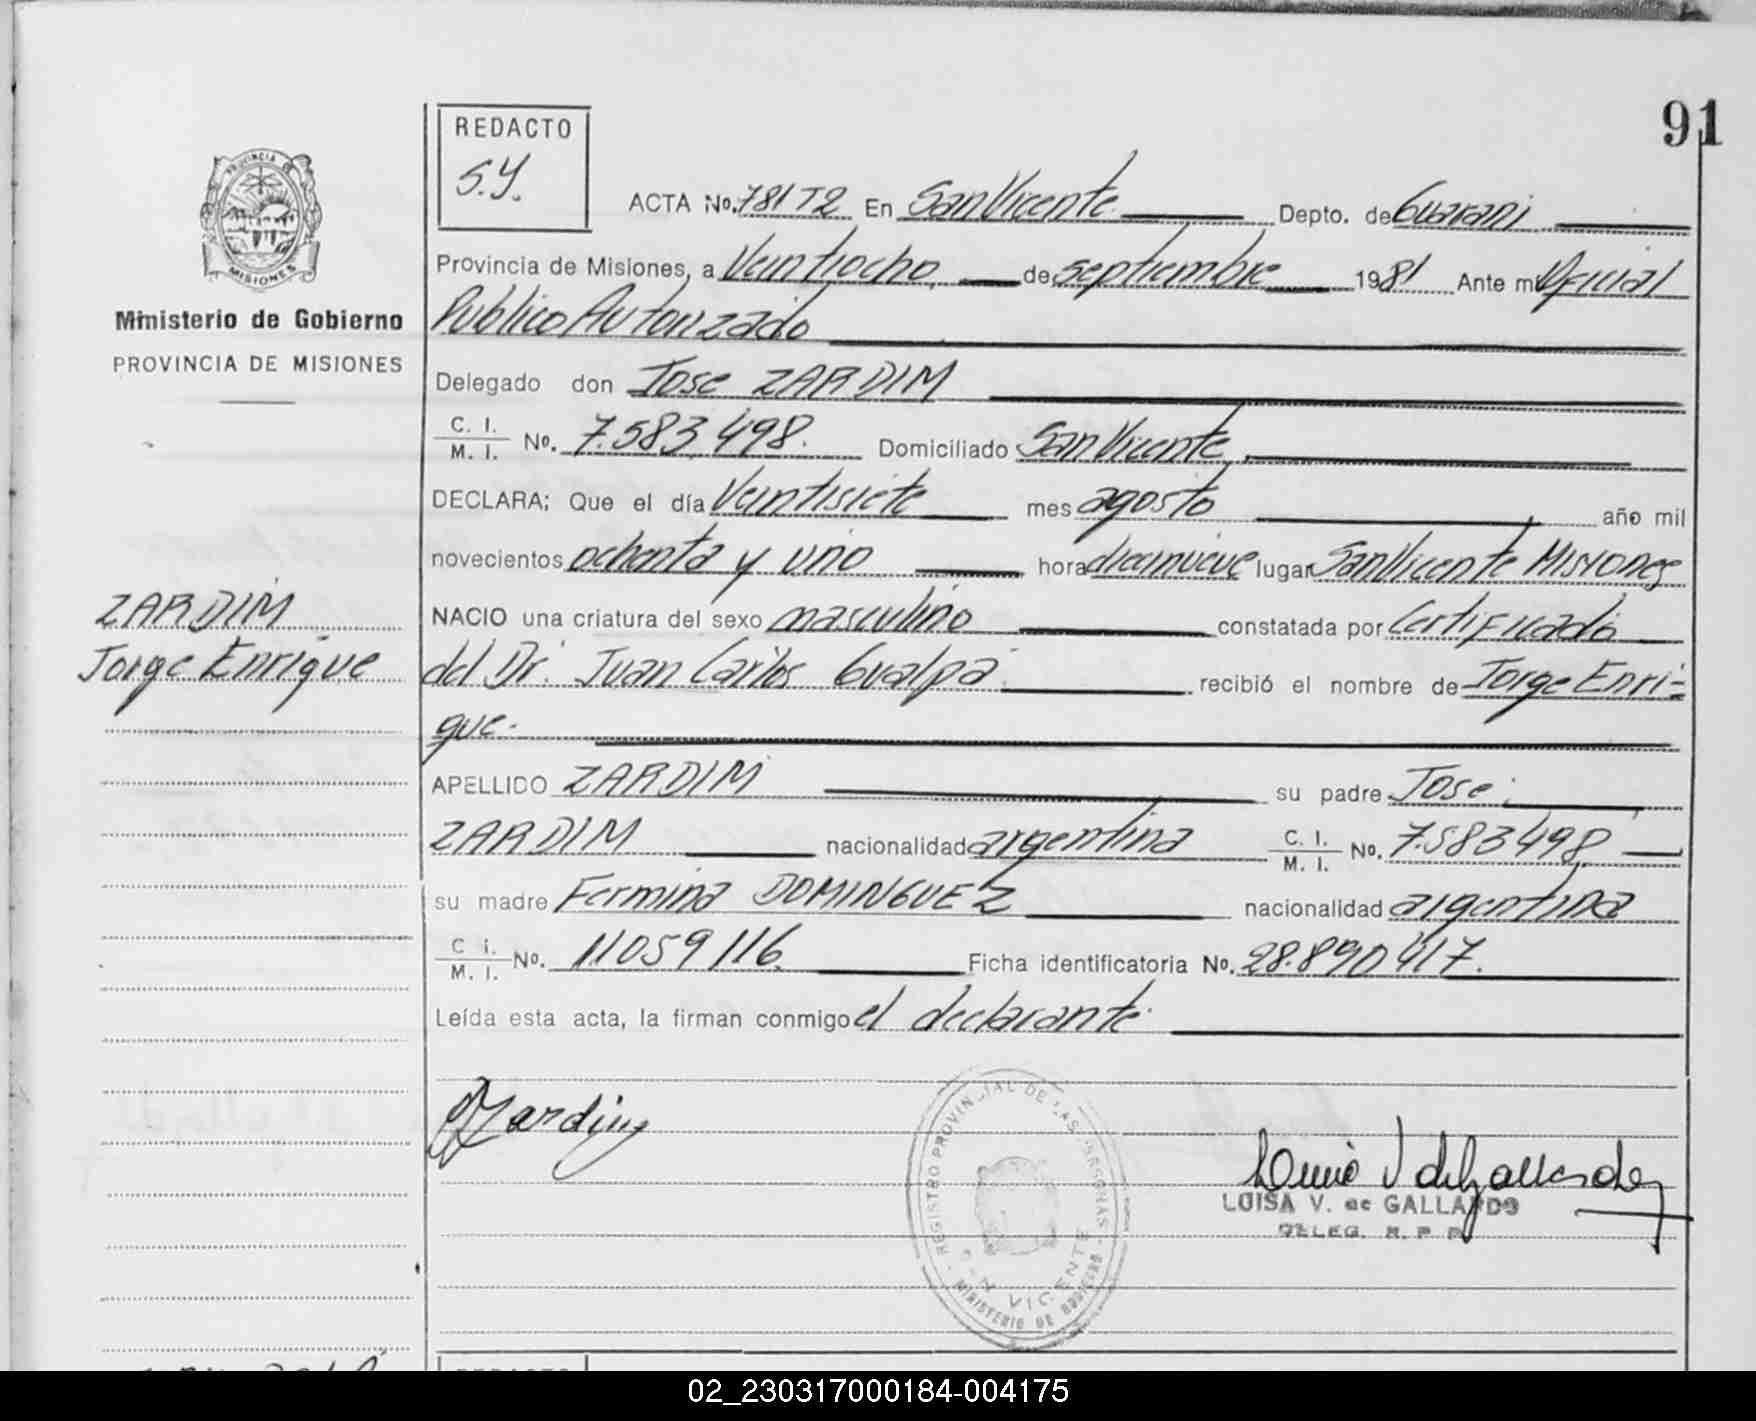 91
REDACTO
S.Y.
PROVINCIA DE
MISIONES
Ministerio de Gobierno
PROVINCIA DE MISIONES
ZARDIM
Jorge Enrique
ACTA No. 781 T2 En San Vicente Depto. de Guarani
Provincia de Misiones, a Veintiocho de septiembre 1981 Ante mi Oficial
Publico Autorizado
Delegado don Jose ZARDIM
C. I. / M. I. No. 7.583.498. Domiciliado San Vicente
DECLARA; Que el día Veintisiete mes agosto año mil
novecientos ochenta y uno hora diecinueve lugar San Vicente Misiones
NACIO una criatura del sexo masculino constatada por Certificado
del Dr. Juan Carlos Gualpa recibió el nombre de Jorge Enri-
que.
APELLIDO ZARDIM su padre Jose
ZARDIM nacionalidad argentina C. I. / M. I. No. 7.583.498
su madre Fermina DOMINGUEZ nacionalidad argentina
C. I. / M. I. No. 11059116 Ficha identificatoria No. 28.890.417.
Leída esta acta, la firman conmigo el declarante.
JZardim
REGISTRO PROVINCIAL DE LAS PERSONAS
SAN VICENTE
MINISTERIO DE GOBIERNO
Luisa V de Gallardo
LUISA V. de GALLARDO
DELEG. R. P. P.
REDACTO
02_230317000184-004175